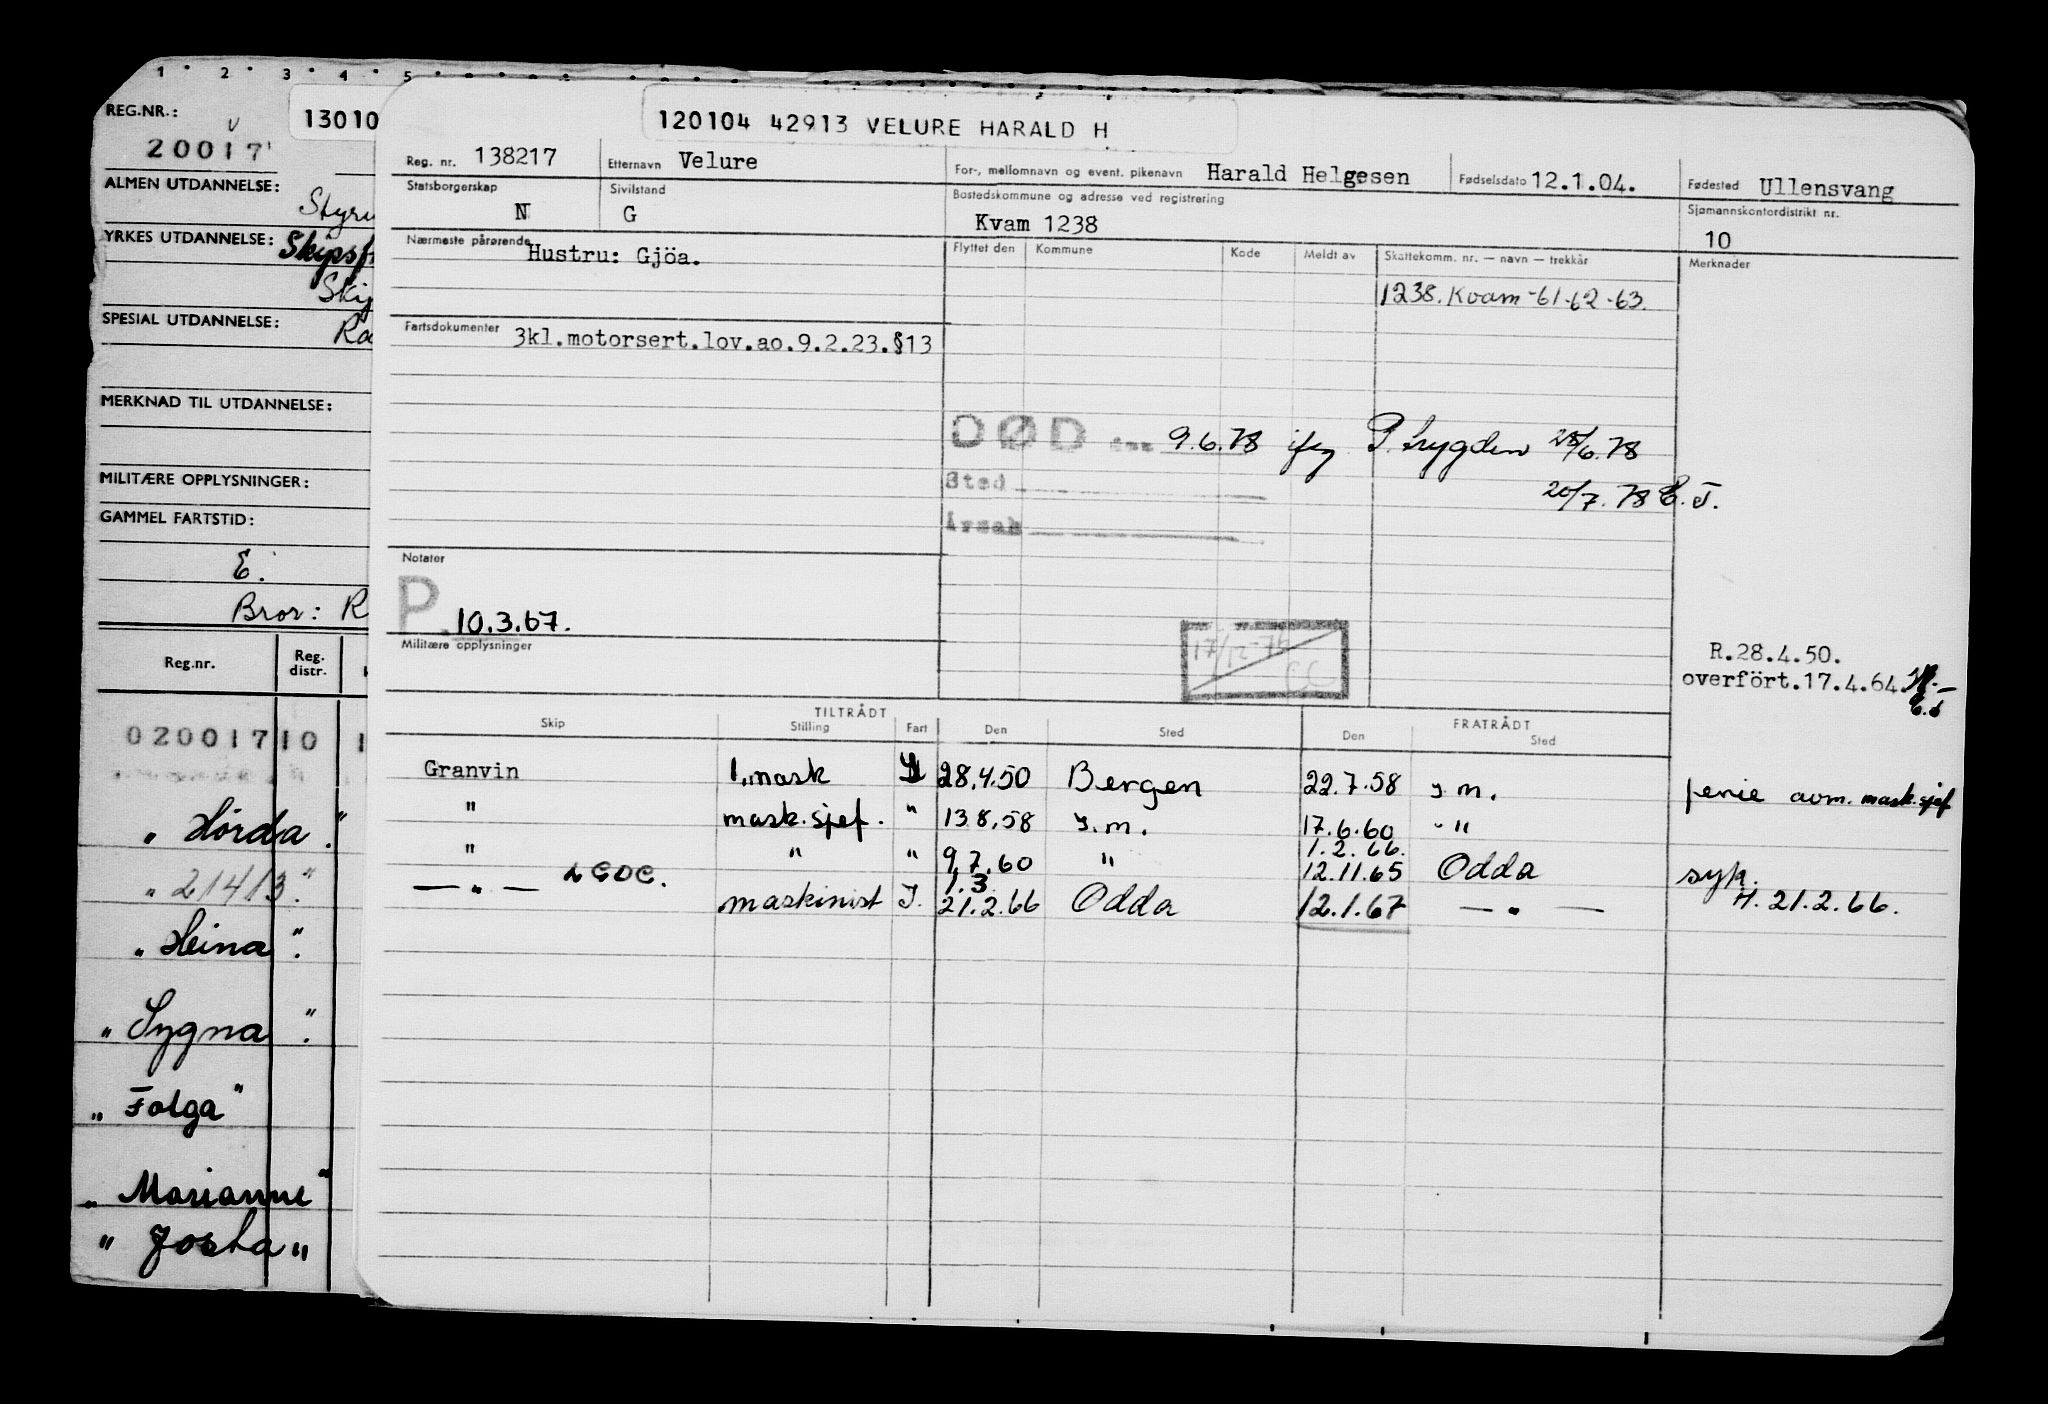 1 2 3 4 5
REG.NR.:
20017
13010
ALMEN UTDANNELSE:
YRKES UTDANNELSE:
SPESIAL UTDANNELSE:
MERKNAD TIL UTDANNELSE:
MILITÆRE OPPLYSNINGER:
GAMMEL FARTSTID:
E.
Bror: R
Reg.nr.
Reg. distr.
02001710 1
„ Hörda "
„ 21413."
„ Heina "
„ Sygna "
„ Folga "
„ Marianne "
" Josta "
120104 42913 VELURE HARALD H
Reg. nr. 138217 Etternavn Velure For-, mellomnavn og event. pikenavn Harald Helgesen Fødselsdato 12.1.04. Fødested Ullensvang
Statsborgerskap N Sivilstand G Bostedskommune og adresse ved registrering Kvam 1238 Sjømannskontordistrikt nr. 10
Nærmeste pårørende Hustru: Gjöa. Flyttet den Kommune Kode Meldt av Skattekomm. nr. — navn — trekkår Merknader
1238. Kvam -61-62-63.
Fartsdokumenter 3kl.motorsert.lov.ao.9.2.23.§13
DØD den 9.6.78 ifg P.trygden 28/6.78
Sted 20/7.78 E.T.
Årsak
Notater
P. 10.3.67.
Militære opplysninger
17/12-76 CC
R.28.4.50.
overfört.17.4.64
TILTRÅDT FRATRÅDT
Skip Stilling Fart Den Sted Den Sted
Granvin 1.mask 28.4.50 Bergen 22.7.58 s.m. ferie avm. mask.sjef
" mask.sjef. " 13.8.58 s.m. 17.6.60 "
" " " 9.7.60 " 1.2.66. 12.11.65 Odda syk.
— " — maskinist 1.3. 21.2.66 Odda 12.1.67 — " — H. 21.2.66.